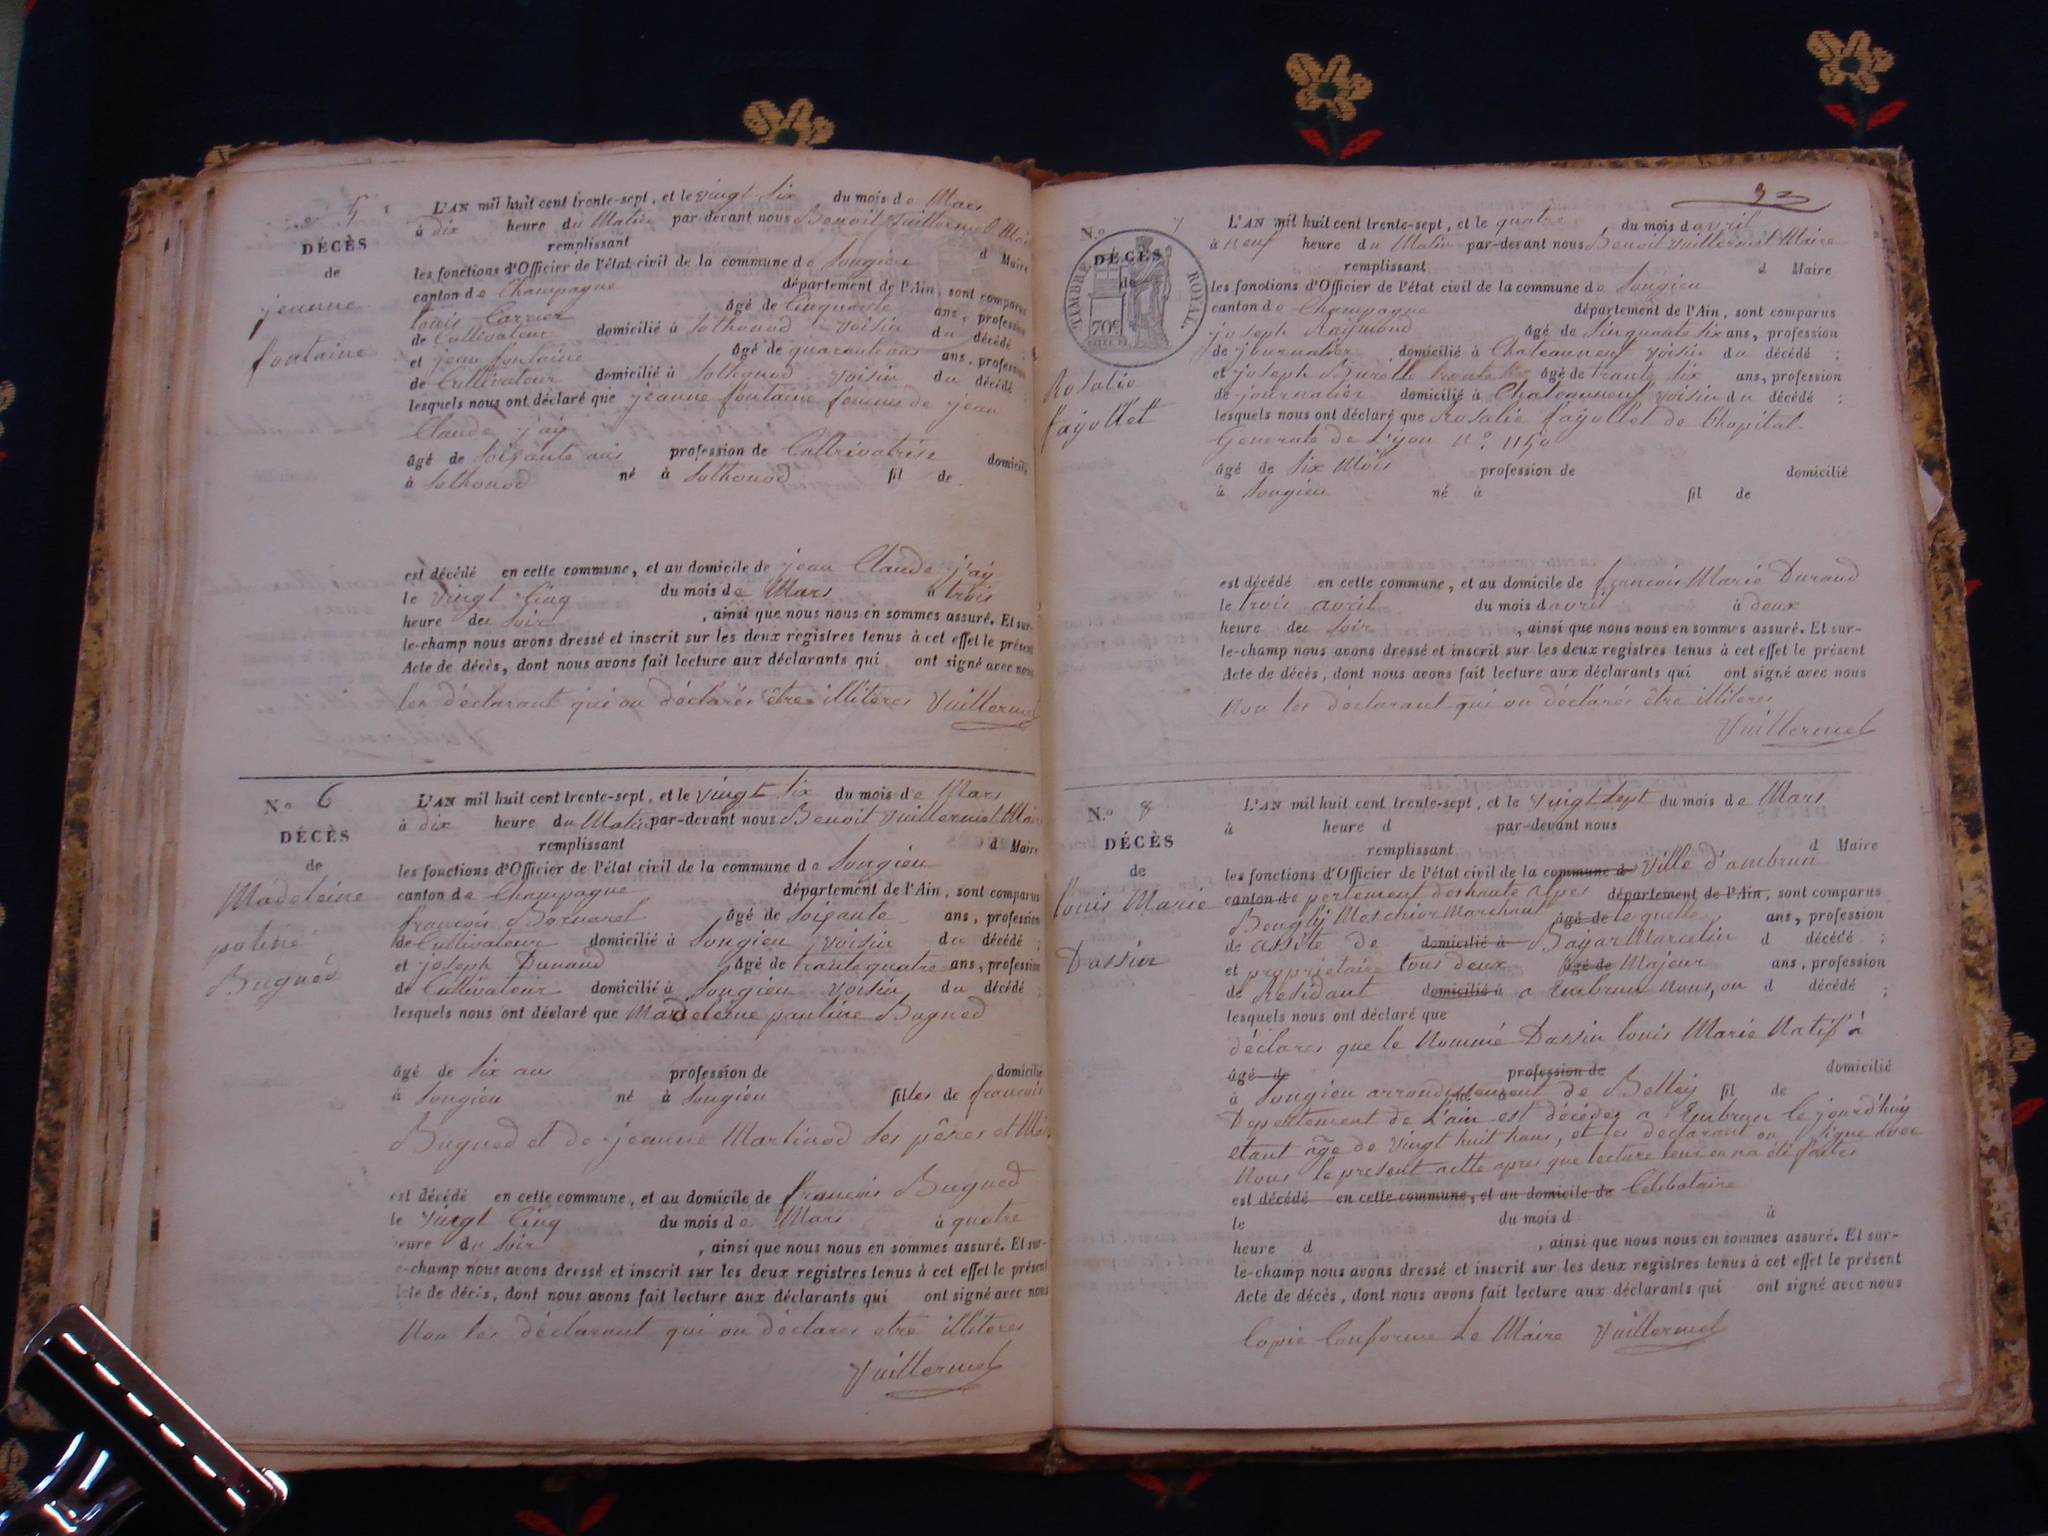 5
DÉCÈS
de
jeanne
fontaine
L'AN mil huit cent trente-sept, et le vingt six du mois de Mars
à dix heure du Matin par-devant nous Benoit Vuillermet Maire
remplissant d Maire
les fonctions d'Officier de l'état civil de la commune de Songieu
canton de Champagne département de l'Ain, sont comparus
Louis Carrier âgé de Cinquante ans, profession
de Cultivateur domicilié à Sothonod voisin du décédé ;
et jean fontaine âgé de quarente ans ans, profession
de Cultivateur domicilié à Sothonod voisin du décédé ;
lesquels nous ont déclaré que jeanne fontaine femme de jean
Claude jay
âgé de soisante ans profession de Cultivatrise domicilié
à Sothonod né à Sothonod fil de
est décédé en cette commune, et au domicile de jean Claude jay
le vingt Cinq du mois de Mars à trois
heure du Soir , ainsi que nous nous en sommes assuré. Et sur-
le-champ nous avons dressé et inscrit sur les deux registres tenus à cet effet le présent
Acte de décès, dont nous avons fait lecture aux déclarants qui ont signé avec nous
les déclarant qui on déclarés être illiteres Vuillermet
N.o 6
DÉCÈS
de
Madeleine
poline
Bugned
L'AN mil huit cent trente-sept, et le vingt six du mois de Mars
à dix heure du Matin par-devant nous Benoit Vuillermet Maire
remplissant d Maire
les fonctions d'Officier de l'état civil de la commune de Songieu
canton de Champagne département de l'Ain, sont comparus
françois âgé de Soisante ans, profession
de Cultivateur domicilié à Songieu voisin du décédé ;
et joseph Dunand âgé de trante quatre ans, profession
de Cultivateur domicilié à Songieu voisin du décédé ;
lesquels nous ont déclaré que Madeleine pauline Bugned
âgé de Six ans profession de domicilié
à Songieu né à Songieu filles de francois
Bugned et de jeanne Martinod Ses pères et
est décédé en cette commune, et au domicile de francois Bugned
le vingt Cinq du mois de Mars à quatre
heure du Soir , ainsi que nous nous en sommes assuré. Et sur-
le-champ nous avons dressé et inscrit sur les deux registres tenus à cet effet le présent
Acte de décès, dont nous avons fait lecture aux déclarants qui ont signé avec nous
Non les déclarant qui on déclares etre illiteres
Vuillermet
N.o 7
TIMBRE ROYAL
70c
DÉCÈS
de
Rosalie
fayollet
L'AN mil huit cent trente-sept, et le quatre du mois d avril
à neuf heure du Matin par-devant nous Benoit Vuillermet Maire
remplissant d Maire
les fonctions d'Officier de l'état civil de la commune de Songieu
canton de Champagne département de l'Ain, sont comparus
joseph Raymond âgé de Sinquante six ans, profession
de journalier domicilié à Chateauneuf voisin du décédé ;
et joseph Burelle âgé de trante Six ans, profession
de journalier domicilié à Chateauneuf voisin du décédé ;
lesquels nous ont déclaré que Rosalie fayollet de l'hopital
Generale de Lyon n.o 1150
âgé de Six Mois profession de domicilié
à Songieu né à fil de
est décédé en cette commune, et au domicile de francois Marie Durand
le trois avril du mois d avril à deux
heure du Soir , ainsi que nous nous en sommes assuré. Et sur-
le-champ nous avons dressé et inscrit sur les deux registres tenus à cet effet le présent
Acte de décès, dont nous avons fait lecture aux déclarants qui ont signé avec nous
Non les déclarant qui on déclarés être illiteres
Vuillermet
N.o 8
DÉCÈS
de
louis Marie
Dassin
L'AN mil huit cent trente-sept, et le vingt Sept du mois de Mars
à heure d par-devant nous
remplissant d Maire
les fonctions d'Officier de l'état civil de la commune d ville d'ambrun
canton de pertement des haute alpes département de l'Ain, sont comparus
Melchior Marchant âgé de le quelle ans, profession
de assité de domicilié à Bayar Marcelin d décédé ;
et propriétaire tous deux âgé de Majeur ans, profession
de Residant domicilié à a Embrun Nous, on d décédé ;
lesquels nous ont déclaré que
déclares que le Nommé Dassin louis Marie Natif à
âgé de profession de domicilié
à Songieu arrondissement de Belley fil de
Depertement de L'ain est décédez a Embrun le jourd'huy
etant age de vingt huit hans, et les declarant on Signe avec
Nous le present acte apres que lecture leur en na été faites
est décédé en cette commune, et au domicile de Celibataire
le du mois d à
heure d , ainsi que nous nous en sommes assuré. Et sur-
le-champ nous avons dressé et inscrit sur les deux registres tenus à cet effet le présent
Acte de décès, dont nous avons fait lecture aux déclarants qui ont signé avec nous
Copie Conforme Le Maire Vuillermet